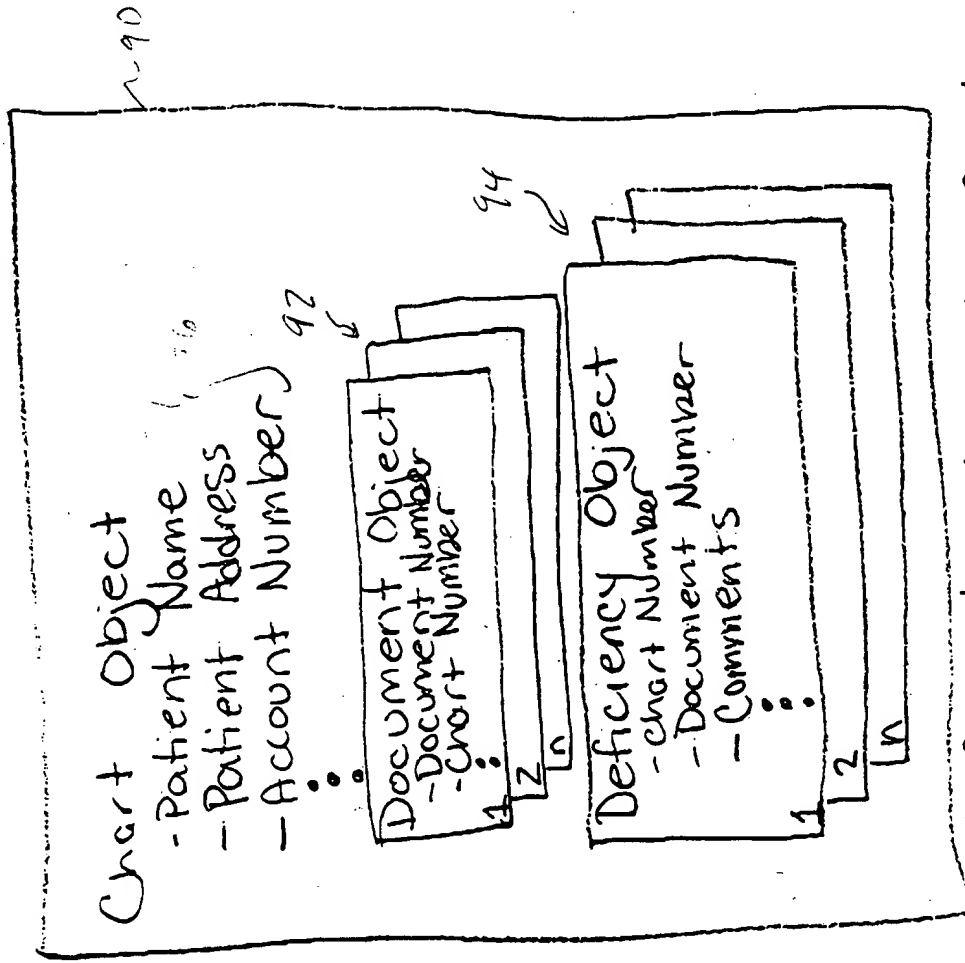 90
Chart Object
-Patient Name
-Patient Address
-Account Number
92
Document Object
-Document Number
-Chart Number
1
2
n
94
Deficiency Object
-chart Number
-Document Number
-Comments
1
2
n